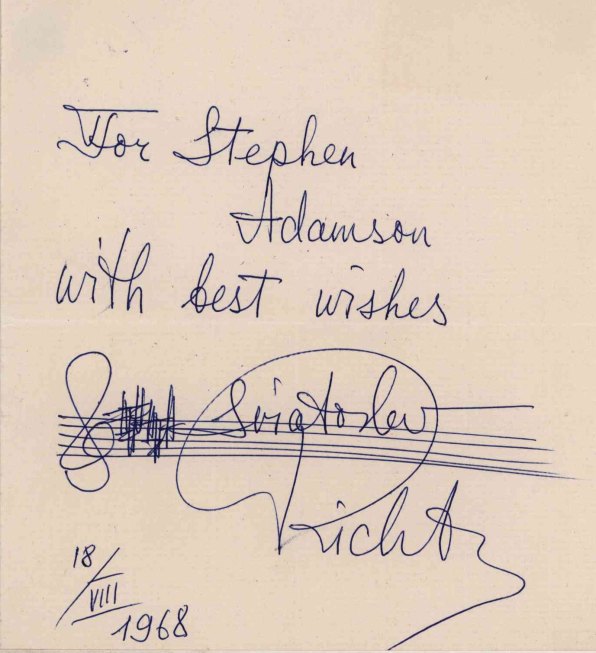 For Stephen
Adamson
with best wishes
Sviatoslav
Richter
18/VIII
1968